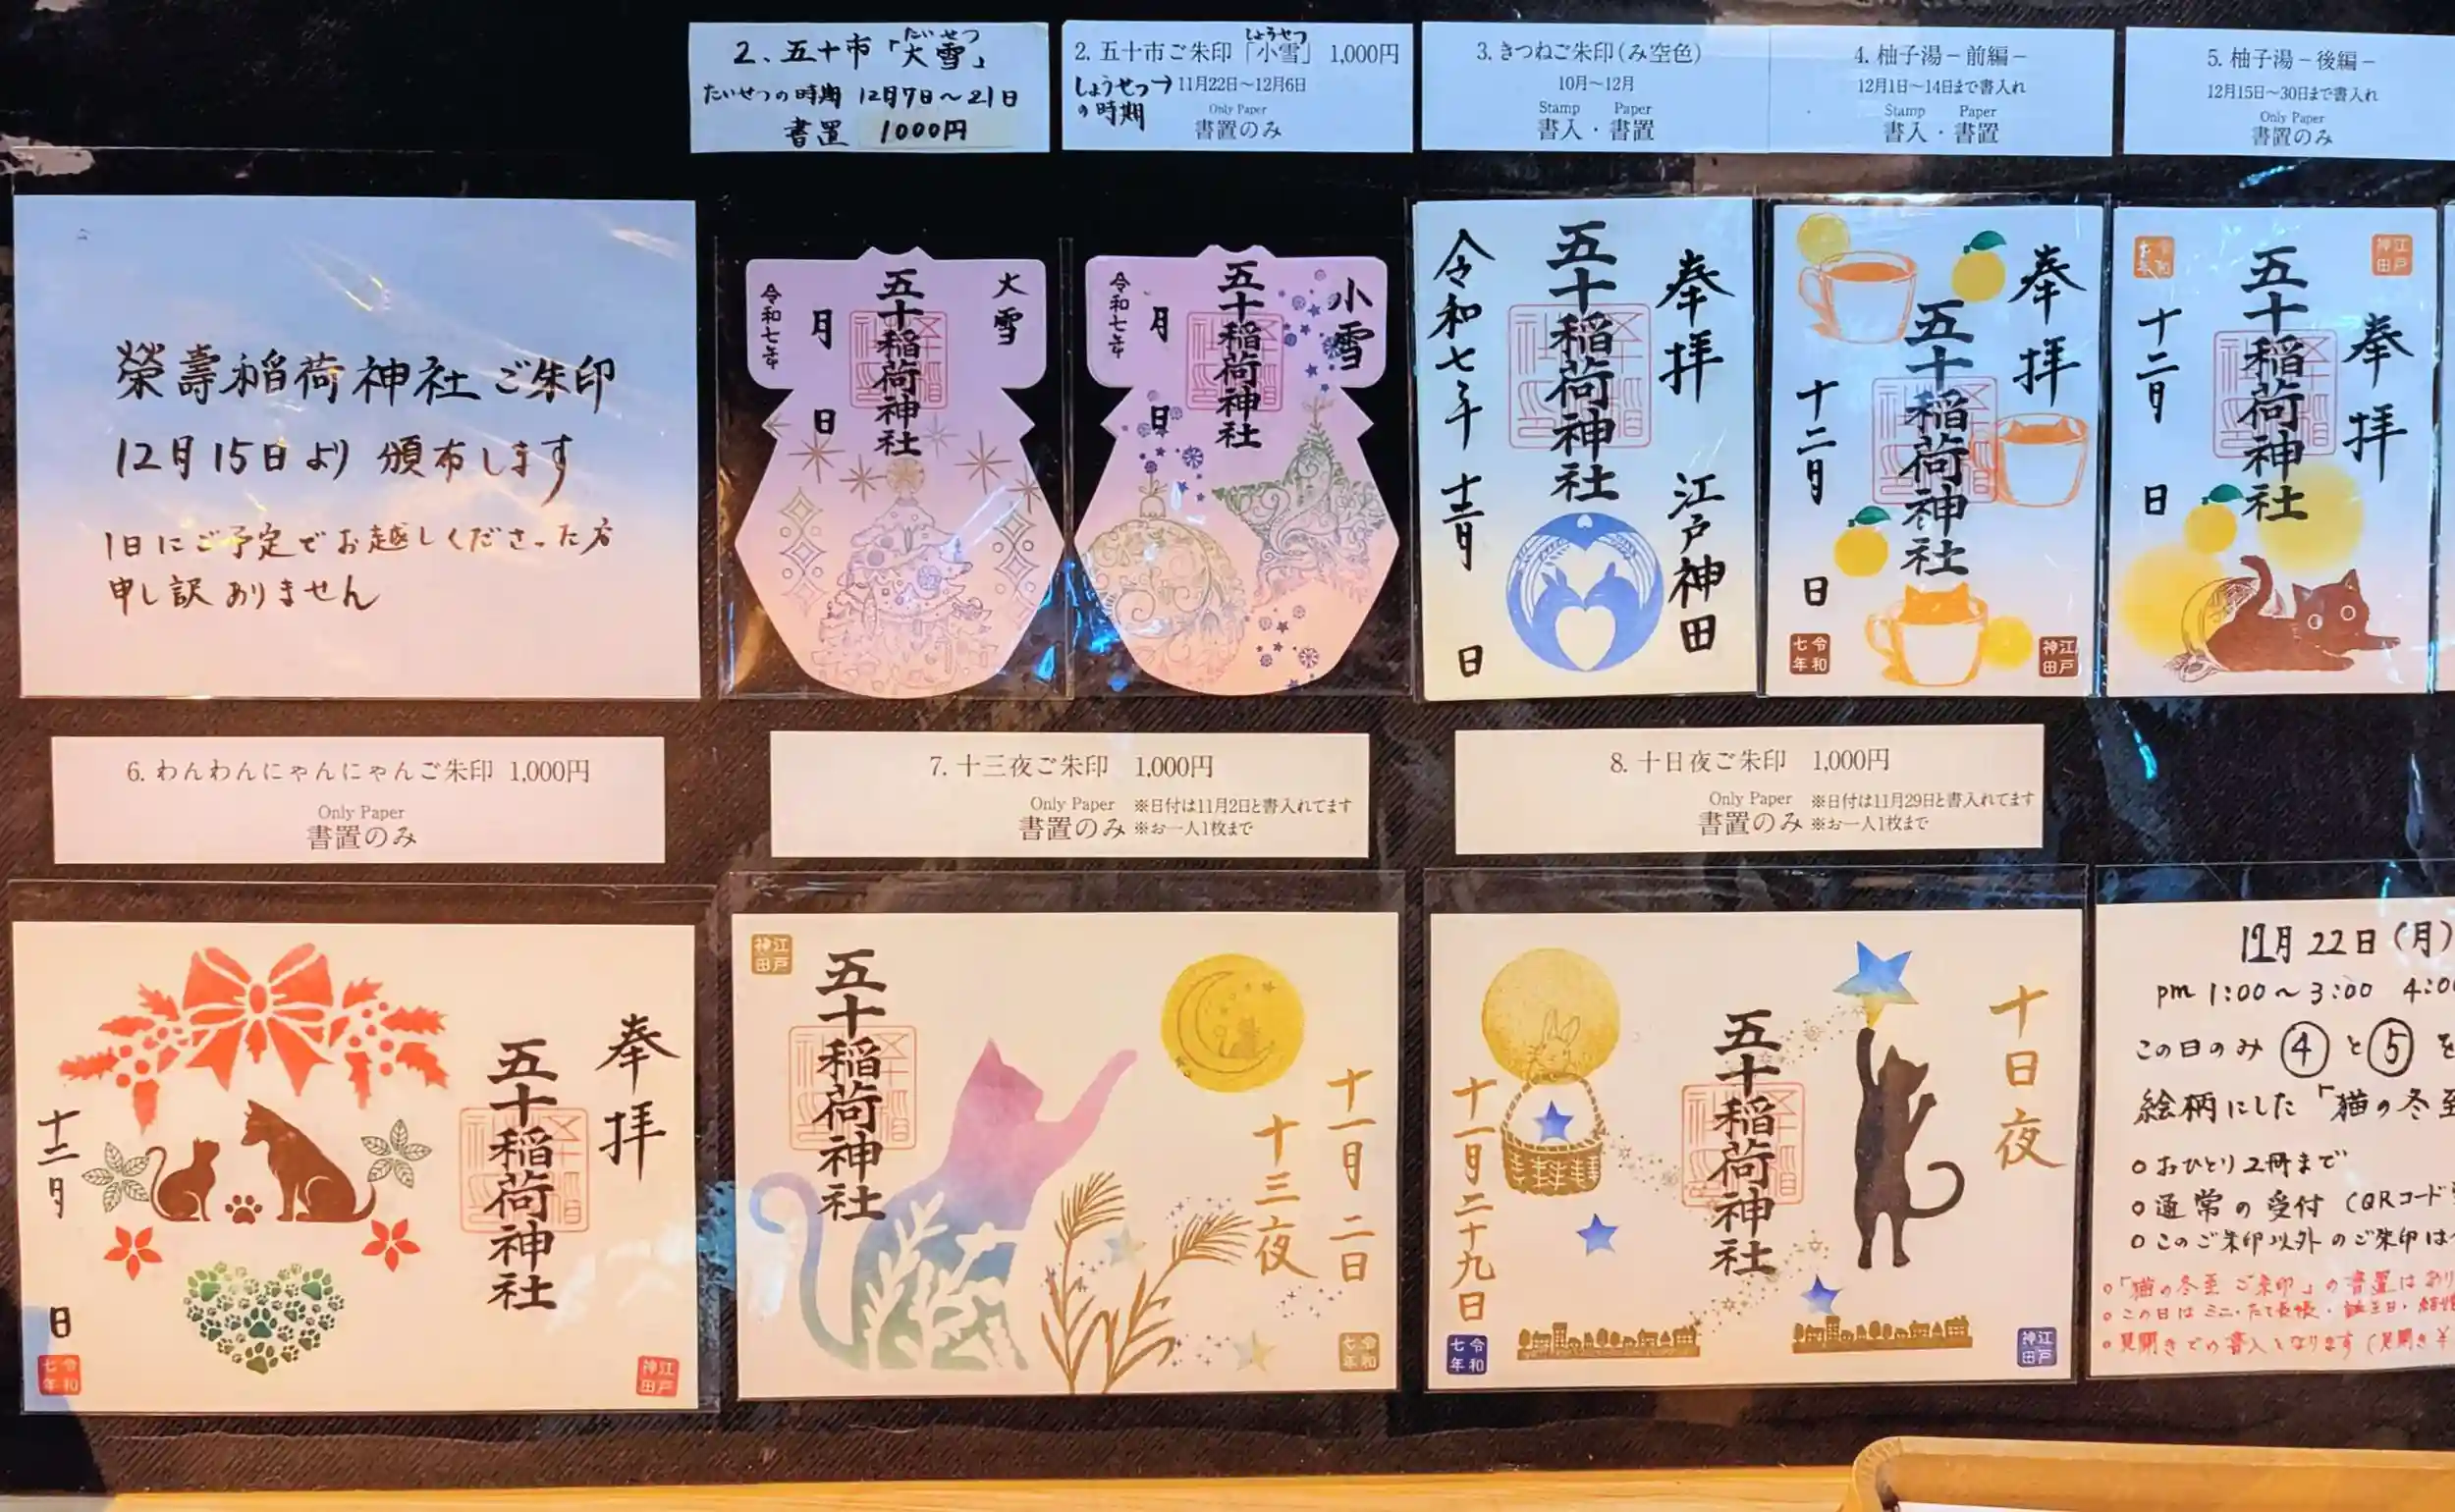 2、五十市「大雪」
たいせつ
たいせつの時期 12月7日～21日
書置 1000円
2. 五十市ご朱印「小雪」 1,000円
しょうせつ
しょうせつ→ 11月22日～12月6日
の時期
Only Paper
書置のみ
3. きつねご朱印（み空色）
10月～12月
Stamp Paper
書入・書置
4. 柚子湯－前編－
12月1日～14日まで書入れ
Stamp Paper
書入・書置
5. 柚子湯－後編－
12月15日～30日まで書入れ
Only Paper
書置のみ
榮壽稲荷神社ご朱印
12月15日より頒布します
1日にご予定でお越しくださった方
申し訳ありません
大雪
五十稲荷神社
月 日
令和七年
小雪
五十稲荷神社
月 日
令和七年
奉拝
江戸神田
五十稲荷神社
令和七年
十二月 日
奉拝
五十稲荷神社
十二月 日
令和七年
江戸神田
江戸神田
奉拝
五十稲荷神社
十二月 日
令和七年
6. わんわんにゃんにゃんご朱印 1,000円
Only Paper
書置のみ
7. 十三夜ご朱印 1,000円
Only Paper ※日付は11月2日と書入れてます
書置のみ ※お一人1枚まで
8. 十日夜ご朱印 1,000円
Only Paper ※日付は11月29日と書入れてます
書置のみ ※お一人1枚まで
奉拝
五十稲荷神社
十二月 日
令和七年
江戸神田
江戸神田
五十稲荷神社
十一月二日
十三夜
令和七年
十日夜
五十稲荷神社
十一月二十九日
令和七年
江戸神田
12月22日（月）
pm 1:00～3:00 4:00
この日のみ ④と⑤を
絵柄にした「猫の冬至
○おひとり2冊まで
○通常の受付（QRコード
○このご朱印以外のご朱印は
○「猫の冬至 ご朱印」の書置はあり
○この日はミニ・たて長帳・
○見開きでの書入となります（見開き¥